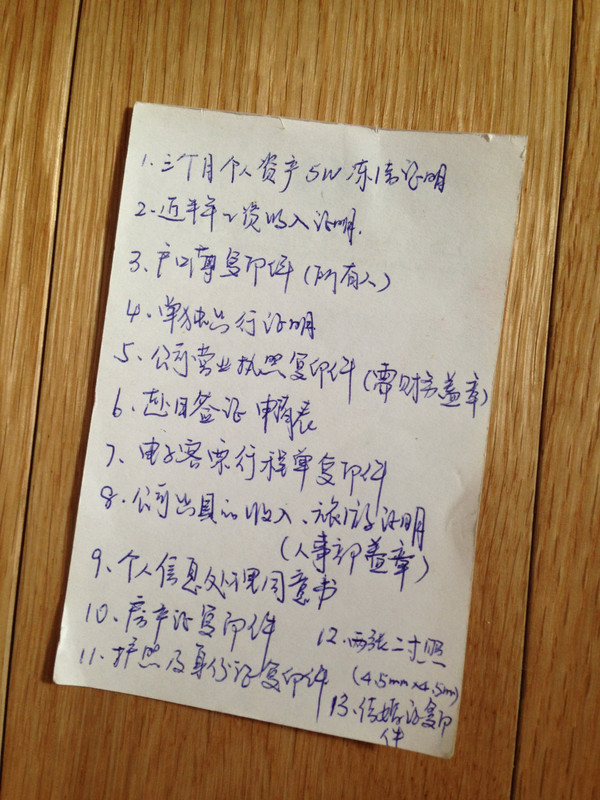 1. 三个月个人资产5W冻结证明
2. 近半年工资收入证明.
3. 户口簿复印件（所有人）
4. 单独出行证明
5. 公司营业执照复印件（需财务盖章）
6. 赴日签证申请表
7. 电子客票行程单复印件
8. 公司出具的收入、旅游证明
（人事部盖章）
9. 个人信息处理同意书
10. 房产证复印件
11. 护照及身份证复印件
12. 两张二寸照
（4.5mm×4.5m）
13. 结婚证复印
件